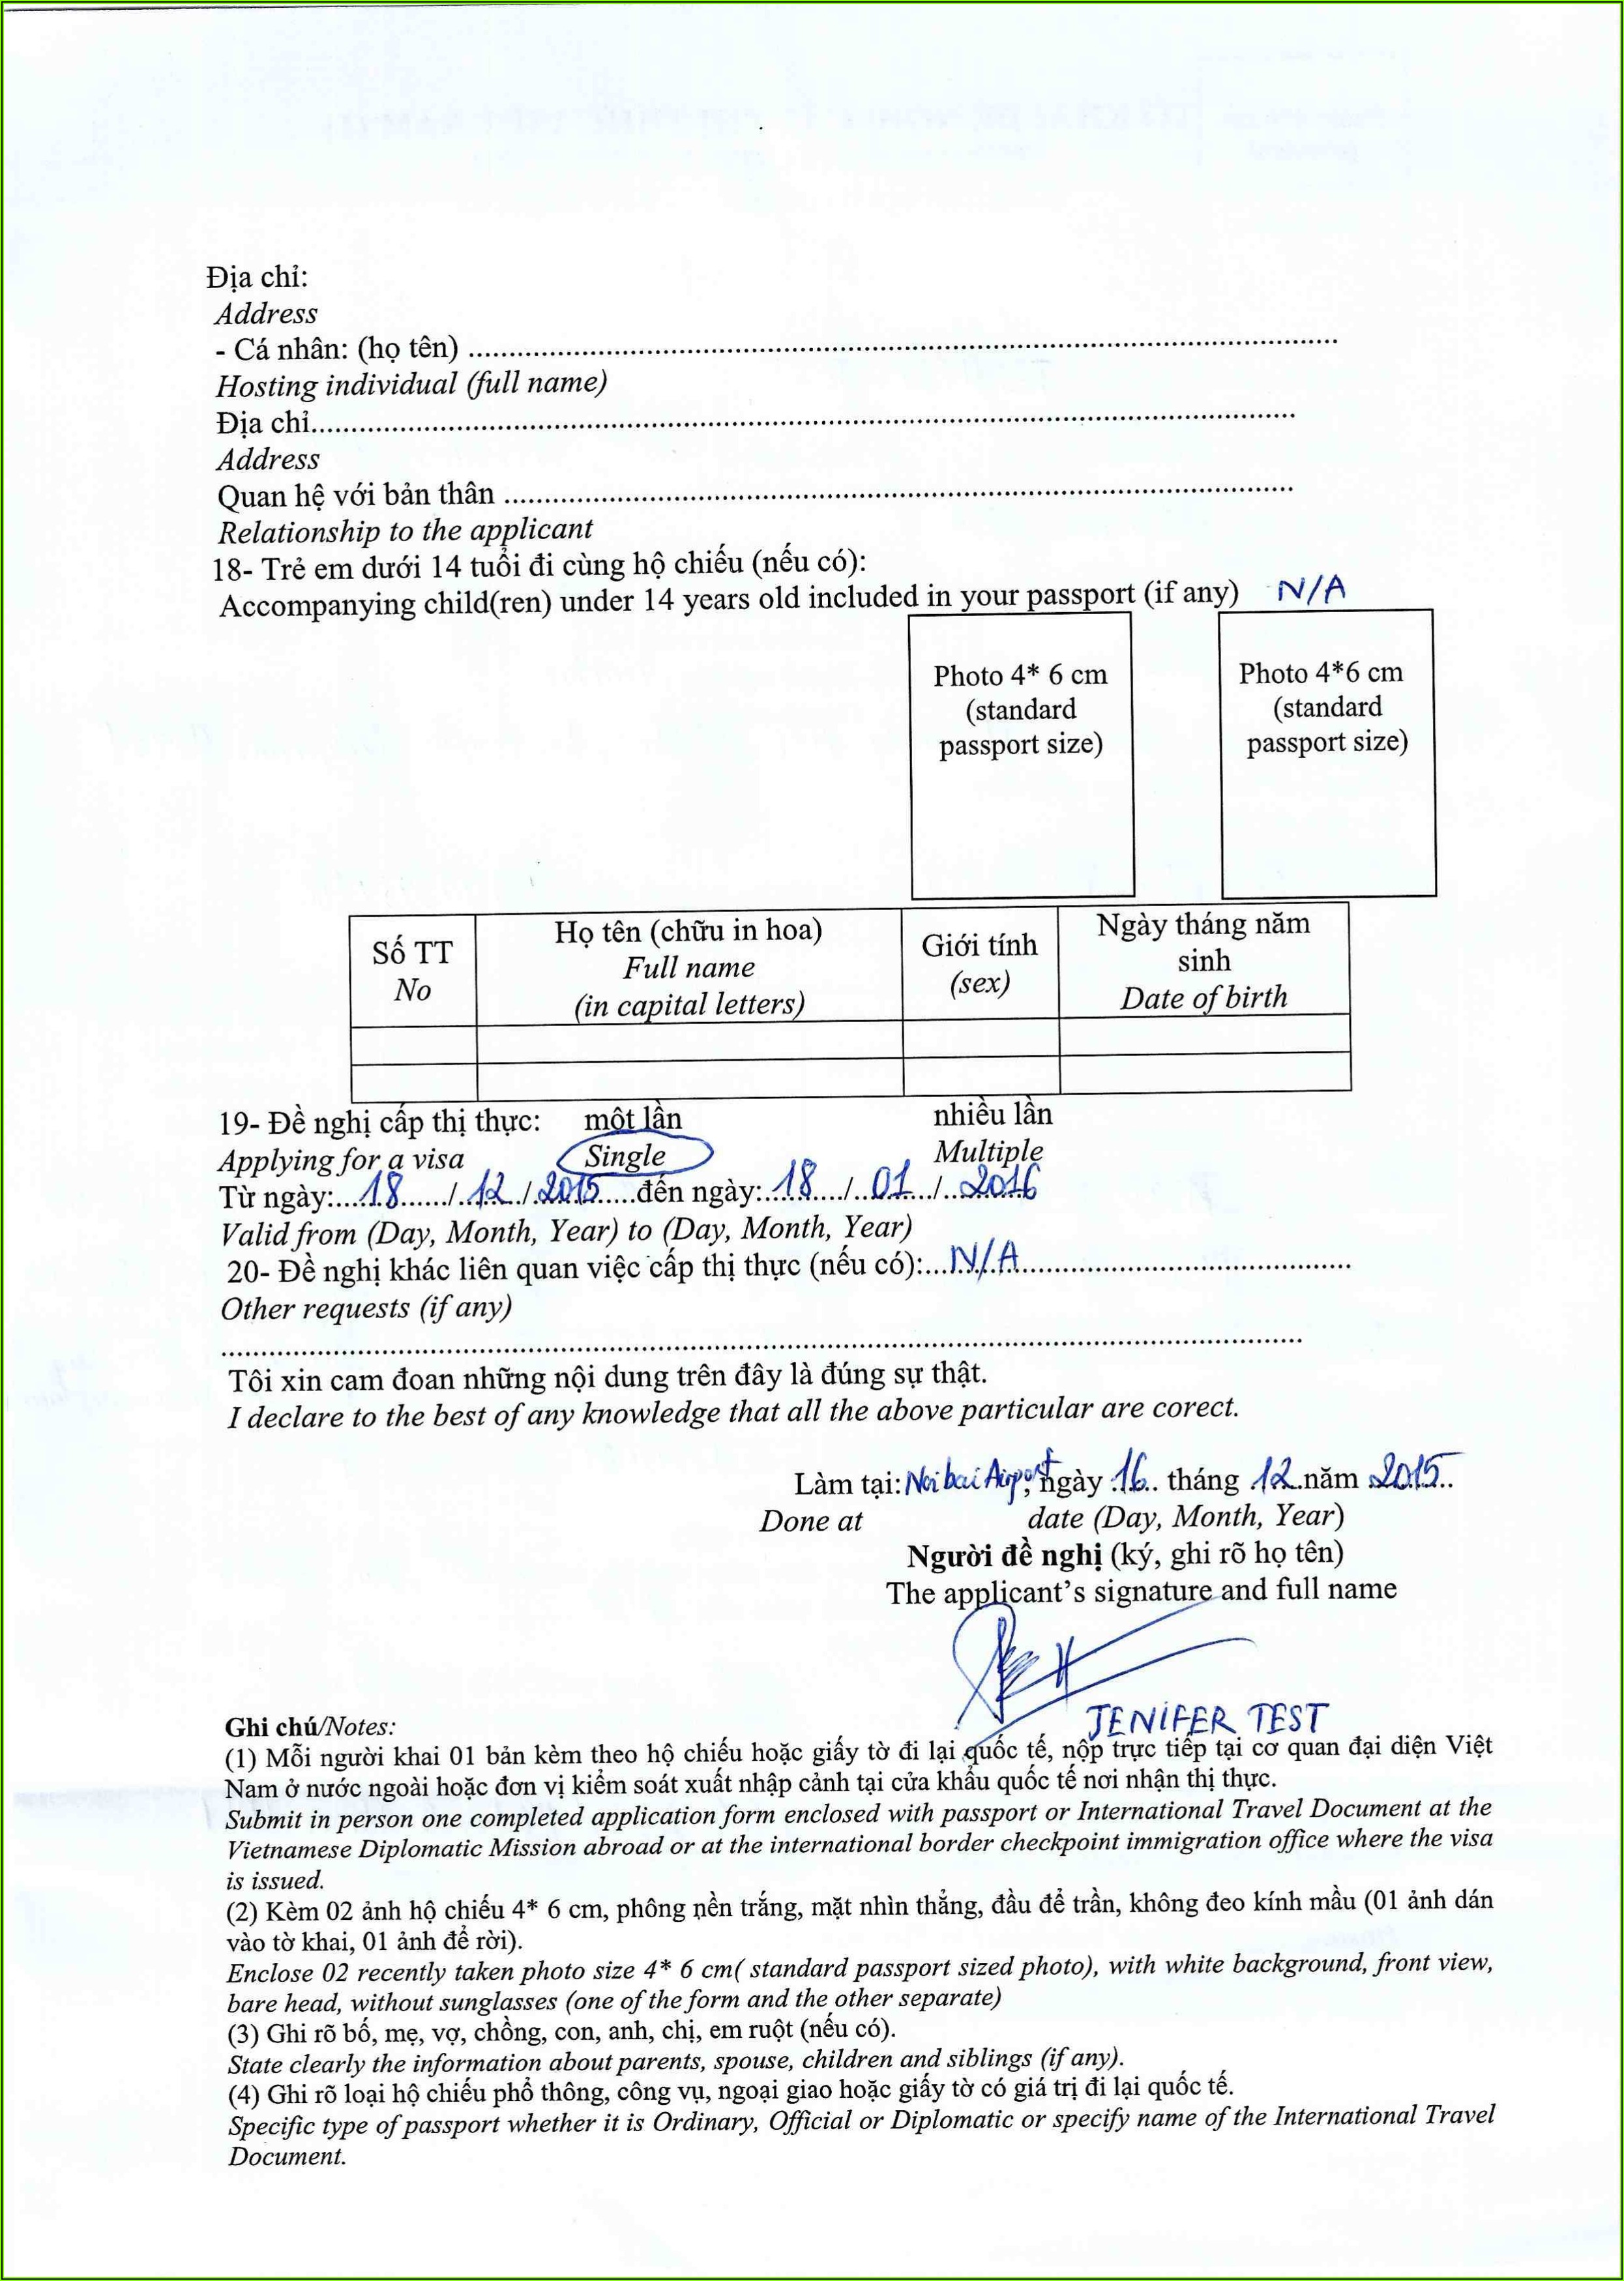 Địa chỉ:
Address
- Cá nhân: (họ tên) ........................................................................
Hosting individual (full name)
Địa chỉ........................................................................
Address
Quan hệ với bản thân ........................................................................
Relationship to the applicant
18- Trẻ em dưới 14 tuổi đi cùng hộ chiếu (nếu có):
Accompanying child(ren) under 14 years old included in your passport (if any) N/A
Photo 4* 6 cm (standard passport size)
Photo 4*6 cm (standard passport size)
Số TT No
Họ tên (chữu in hoa) Full name (in capital letters)
Giới tính (sex)
Ngày tháng năm sinh Date of birth
19- Đề nghị cấp thị thực: một lần nhiều lần
Applying for a visa Single Multiple
Từ ngày:....18....../..12../..2015.....đến ngày:..18..../..01../..2016
Valid from (Day, Month, Year) to (Day, Month, Year)
20- Đề nghị khác liên quan việc cấp thị thực (nếu có):...N/A........................................
Other requests (if any)
........................................................................
Tôi xin cam đoan những nội dung trên đây là đúng sự thật.
I declare to the best of any knowledge that all the above particular are corect.
Làm tại: Noi bai Airport, ngày .16.. tháng .12.năm .2015..
Done at date (Day, Month, Year)
Người đề nghị (ký, ghi rõ họ tên)
The applicant's signature and full name
JENIFER TEST
Ghi chú/Notes:
(1) Mỗi người khai 01 bản kèm theo hộ chiếu hoặc giấy tờ đi lại quốc tế, nộp trực tiếp tại cơ quan đại diện Việt
Nam ở nước ngoài hoặc đơn vị kiểm soát xuất nhập cảnh tại cửa khẩu quốc tế nơi nhận thị thực.
Submit in person one completed application form enclosed with passport or International Travel Document at the
Vietnamese Diplomatic Mission abroad or at the international border checkpoint immigration office where the visa
is issued.
(2) Kèm 02 ảnh hộ chiếu 4* 6 cm, phông nền trắng, mặt nhìn thẳng, đầu để trần, không đeo kính mầu (01 ảnh dán
vào tờ khai, 01 ảnh để rời).
Enclose 02 recently taken photo size 4* 6 cm( standard passport sized photo), with white background, front view,
bare head, without sunglasses (one of the form and the other separate)
(3) Ghi rõ bố, mẹ, vợ, chồng, con, anh, chị, em ruột (nếu có).
State clearly the information about parents, spouse, children and siblings (if any).
(4) Ghi rõ loại hộ chiếu phổ thông, công vụ, ngoại giao hoặc giấy tờ có giá trị đi lại quốc tế.
Specific type of passport whether it is Ordinary, Official or Diplomatic or specify name of the International Travel
Document.